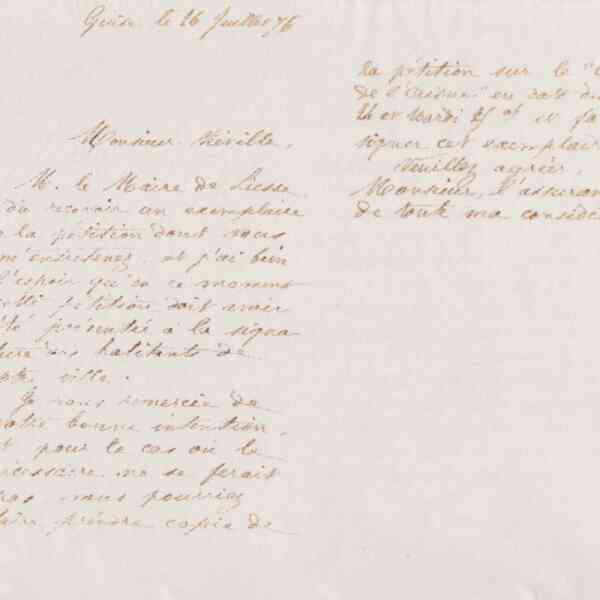 Guise le 16 Juillet 76
Monsieur Néville,
M. le Maire de Liesse
dû recevoir un exemplaire
la pétition dont vous
m'entretenez, et j'ai bien
l'espoir qu'en ce moment
cette pétition doit avoir
été présentée à la signa
ture des habitants de
ville.
Je vous remercie de
votre bonne intention,
et pour le cas où le
nécessaire ne se ferait
pas vous pourriez
faire prendre copie de
la pétition sur le
de l'Aisne" en date du
et Mardi et fa
signer cet exemplair
Veuillez agréer,
Monsieur, l'assuran
de toute ma considé